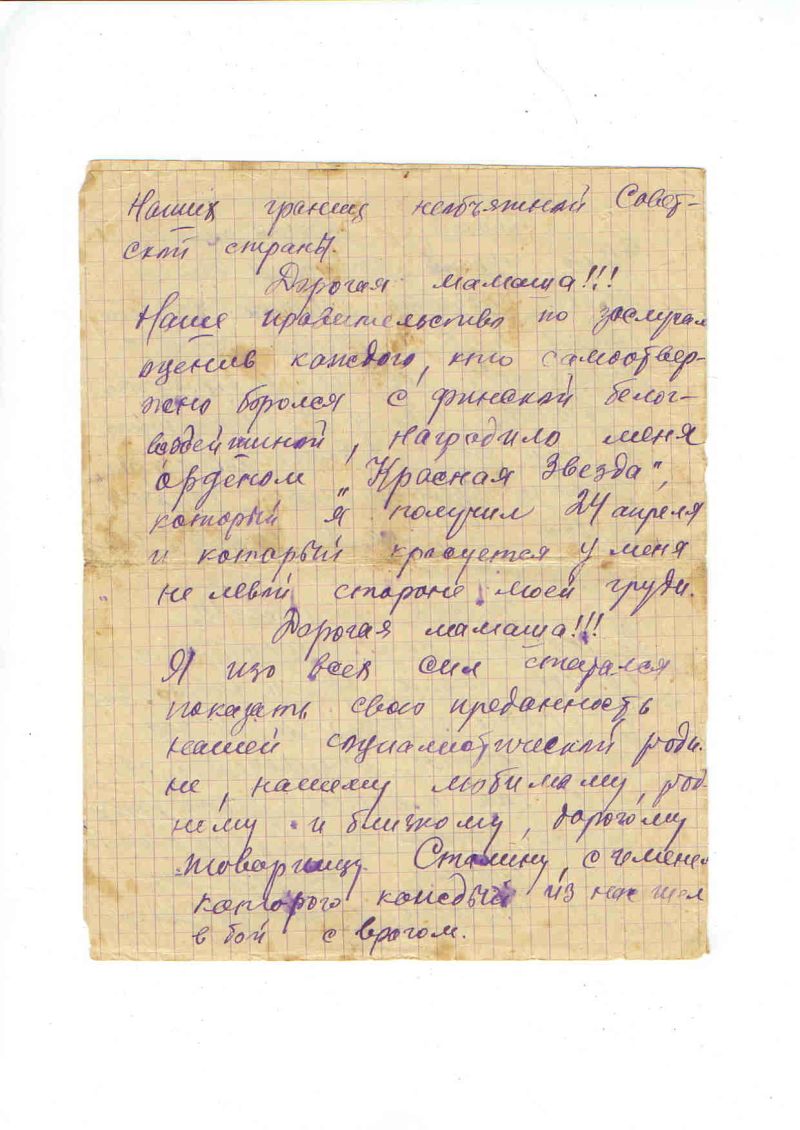 Наших границ необъятной Совет-
ской страны.
Дорогая мамаша!!!
Наше правительство по заслугам
оценив каждого, кто самоотвер-
жено боролся с финской белог-
вардейщиной, наградило меня
орденом „Красная Звезда",
который я получил 24 апреля
и который красуется у меня
на левой стороне моей груди.
Дорогая мамаша!!!
Я изо всех сил старался
показать свою преданность
нашей социалистической роди-
не, нашему любимому, род-
нему и близкому, дорогому
товарищу Сталину, с именем
которого каждый из нас шел
в бой с врагом.